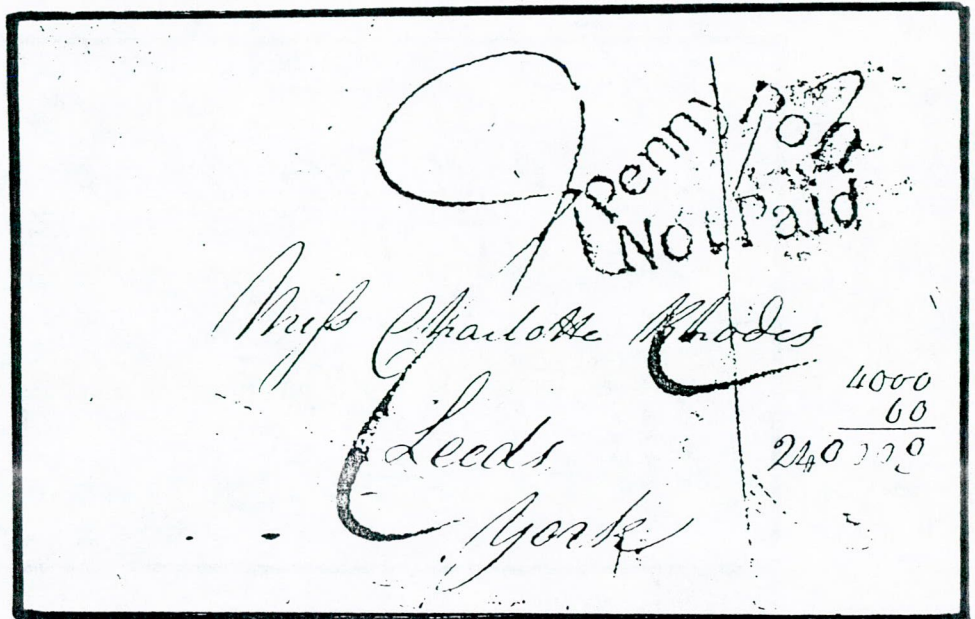 Penny Post
Not Paid
Miſs Charlotte Rhodes
Leeds
York
4000
60
240000